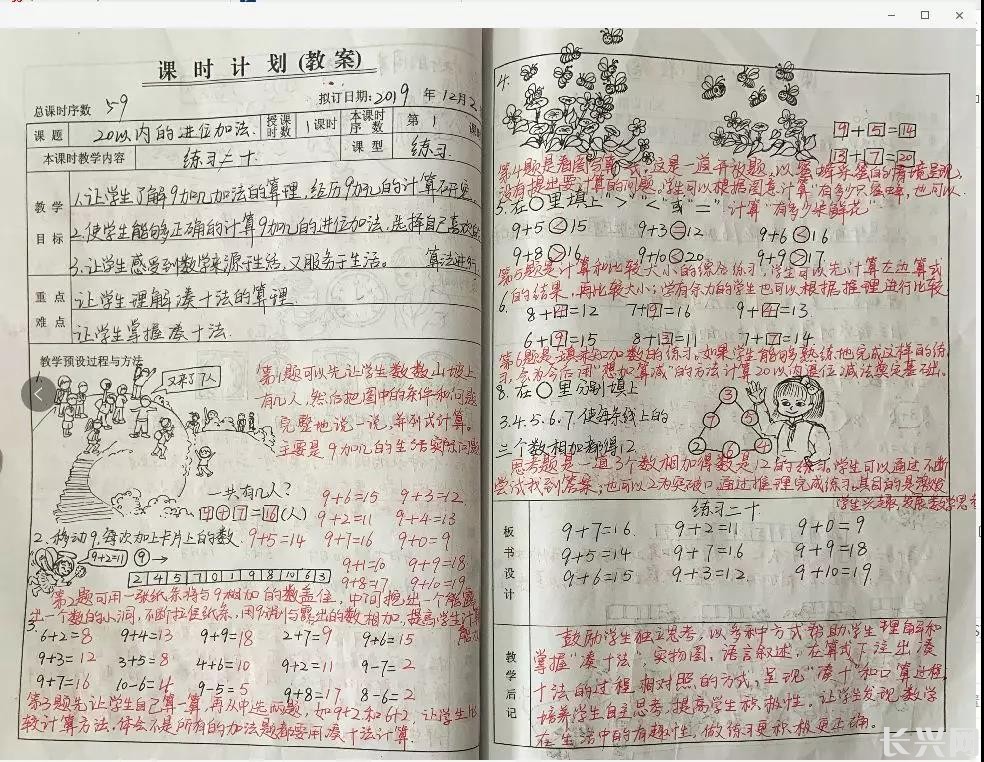 课时计划(教案)
总课时序数 59
拟订日期:2019年12月2
课题 20以内的进位加法. 授课时数 1课时 本课时序数 第1课时
本课时教学内容 练习二十. 课型 练习.
教学目标
1.让学生了解9加几加法的算理,经历9加几的计算研究
2.使学生能够正确的计算9加几的进位加法,选择自己喜欢的
算法进行
3.让学生感受到数学来源于生活,又服务于生活。
重点难点
让学生理解凑十法的算理.
让学生掌握凑十法.
教学预设过程与方法
1.
又来了7人
第1题可以先让学生数数山坡上
有几人,然后把图中的条件和问题
完整地说一说,并列式计算。
主要是9加几的生活实际问题
一共有几人?
9+7=16(人)
9+6=15 9+3=12
9+2=11 9+4=13
2.移动9,每次加上卡片上的数. 9+5=14 9+7=16 9+0=9
9+2=11 9 →
9+1=10 9+9=18
2 4 5 7 0 1 9 8 10 6 3
9+8=17 9+10=19
第2题可用一张纸条将与9相加的数盖住,中间挖出一个能露
出一个数的小洞,不断拉住纸条,用9说与露出的数相加,提高学生计算
能力
3.
6+2=8 9+4=13 9+9=18 2+7=9 9+6=15
9+3=12 3+5=8 4+6=10 9+2=11 9-7=2
9+7=16 10-6=4 9-5=5 9+8=17 8-6=2
第3题先让学生自己算一算,再从中选两题,如9+2和6+2,让学生比
较计算方法,体会不是所有的加法题都要用凑十法计算.
4.
9+5=14
13+7=20
第4题是看图写算式,这是一道开放题,以蜜蜂采蜜的情境呈现,
没有提出要计算的问题。学生可以根据图意计算"有多少只蜜蜂,也可以
计算"有多少朵鲜花"
5.在○里填上">""<"或"="
9+5<15 9+3=12 9+6<16
9+8>16 9+10<20 9+9>17
第5题是计算和比较大小的综合练习,学生可以先计算左边算式
的结果,再比较大小;学有余力的学生也可以根据推理进行比较
6. 8+4=12 7+9=16 9+4=13
6+9=15 8+3=11 7+7=14
第6题是填未知加数的练习。如果学生能够熟练地完成这样的练
习,会为今后用"想加算减"的方法计算20以内退位减法奠定基础。
8.在○里分别填上
3.4.5.6.7.使每条线上的
三个数相加都得12.
3
7 5
2 6 4
思考题是一道3个数相加得数是12的练习.学生可以通过不断
尝试找到答案;也可以2为突破口通过推理完成练习。其目的是激发
学生兴趣,发展数学思考
板书设计
练习二十.
9+7=16. 9+2=11 9+0=9
9+5=14 9+7=16 9+9=18
9+6=15 9+3=12 9+10=19.
教学后记
鼓励学生独立思考,以多种方式帮助学生理解和
掌握"凑十法",实物图、语言叙述、在算式下注出凑
十法的过程相对照的方式,呈现"凑十"和口算过程,
培养学生自主思考,提高学生积极性。让学生发现数学
在生活中的有趣性,做练习更积极更正确。
长兴网